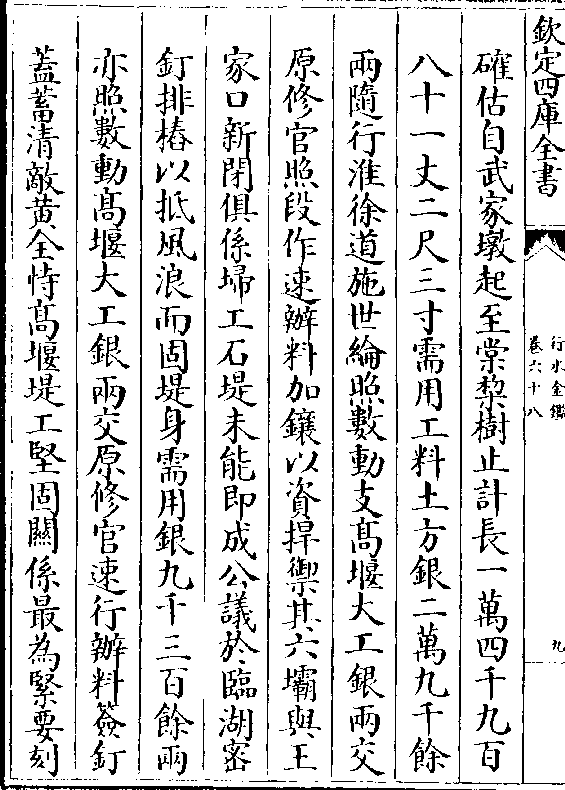 欽定四庫全書
行水金鑑
卷六十八
九
確估自武家墩起至棠梨樹止計長一萬四千九百
八十一丈二尺三寸需用工料土方銀二萬九千餘
兩隨行淮徐道施世綸照數動支髙堰大工銀兩交
原修官照段作速辦料加鑲以資捍禦其六壩與王
家口新閉俱係埽工石堤未能即成公議於臨湖密
釘排樁以抵風浪而固堤身需用銀九千三百餘兩
亦照數動髙堰大工銀兩交原修官速行辦料簽釘
蓋蓄清敵黄全恃髙堰堤工堅固關係最為緊要刻